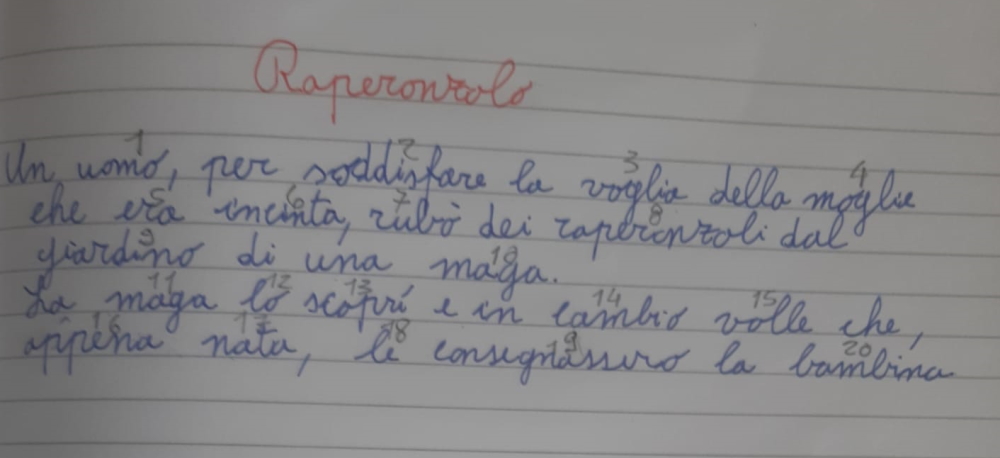 Raperonzolo
Un uomo, per soddisfare la voglia della moglie
che era incinta, rubò dei raperonzoli dal
giardino di una maga.
La maga lo scoprì e in cambio volle che,
appena nata, le consegnassero la bambina
1 2 3 4
5 6 7 8
9 10
11 12 13 14 15
16 17 18 19 20